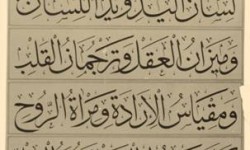 لسان اليد ويد اللسان
وميزان العقل وترجمان القلب
ومقياس الإرادة ومرآة الروح